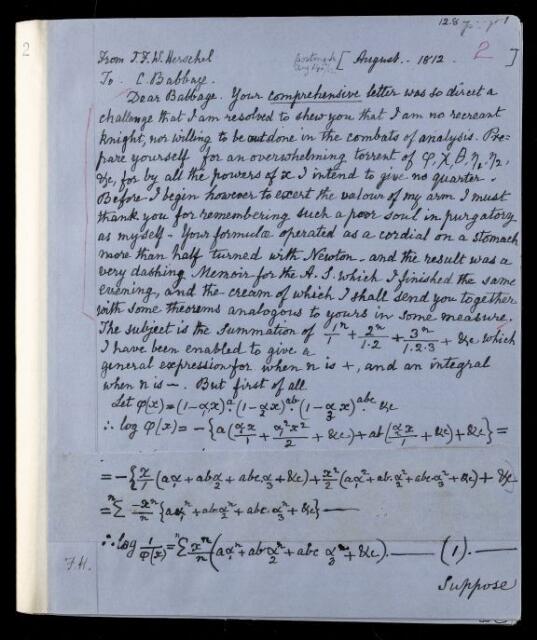 2
2
From J.F.W. Herschel [August. 1812. ]
To C. Babbage.
Dear Babbage. Your comprehensive letter was so direct a
challenge that I am resolved to shew you that I am no recreant
knight, nor willing to be outdone in the combats of analysis. Pre=
pare yourself for an overwhelming torrent of φ, χ, θ, η₁, η₂,
&c, for by all the powers of x I intend to give no quarter.
Before I begin however to exert the valour of my arm I must
thank you for remembering such a poor soul in purgatory
as myself - Your formulæ operated as a cordial on a stomach
more than half turned with Newton - and the result was a
very dashing Memoir for the A. S. which I finished the same
evening, and the cream of which I shall send you together
with some theorems analogous to yours in some measure.
The subject is the Summation of 1ⁿ/1 + 2ⁿ/1.2 + 3ⁿ/1.2.3 + &c which
I have been enabled to give a
general expression for when n is +, and an integral
when n is -. But first of all
Let φ(x) = (1-α₁x)ᵃ.(1-α₂x)ᵃᵇ.(1-α₃x)ᵃᵇᶜ. &c
∴ log φ(x) = -{a(α₁x/1 + α₁²x²/2 + &c) + ab(α₂x/1 + &c) + &c} =
= -{x/1(aα₁ + abα₂ + abc.α₃ + &c) + x²/2(aα₁² + ab.α₂² + abc.α₃² + &c) + &c}
= ⁿΣ -xⁿ/n {aα₁ⁿ + abα₂ⁿ + abc.α₃ⁿ + &c} —
∴ log 1/φ(x) = ⁿΣ xⁿ/n (aα₁ⁿ + abα₂ⁿ + abc α₃ⁿ + &c). — (1). —
J.H.
Suppose